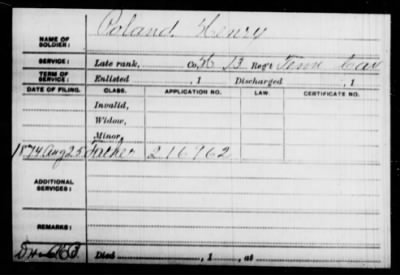 NAME OF SOLDIER: Poland Henry
SERVICE: Late rank, Co. 13 Reg't Tenn Cav
TERM OF SERVICE: Enlisted , 1 Discharged , 1
DATE OF FILING. CLASS. APPLICATION NO. LAW. CERTIFICATE NO.
Invalid,
Widow,
Minor,
1874 Aug 25 Father 216762
ADDITIONAL SERVICES:
REMARKS:
Died , 1 , at